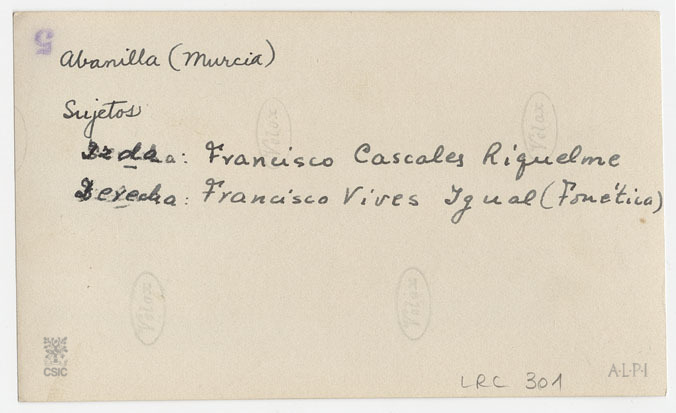 5
Abanilla (Murcia)
Sujetos
Izda: Francisco Cascales Riquelme
Derecha: Francisco Vives Igual (Fonética)
Velox
Velox
Velox
Velox
CSIC
LRC 301
A·L·P·I